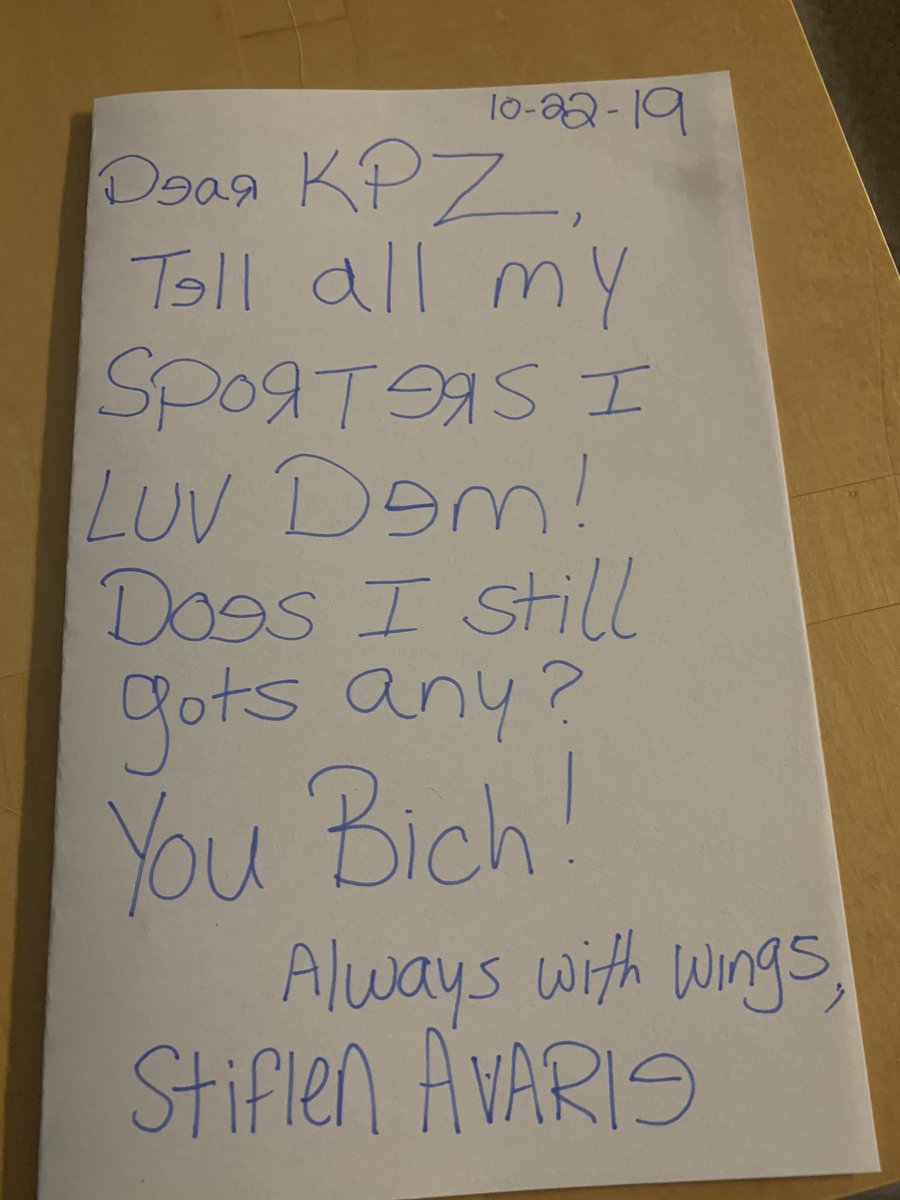 10-22-19
Dear KPZ,
Tell all my
SPORTERS I
LUV Dem!
Does I still
gots any?
You Bich!
Always with wings,
Stiflen AVARIE